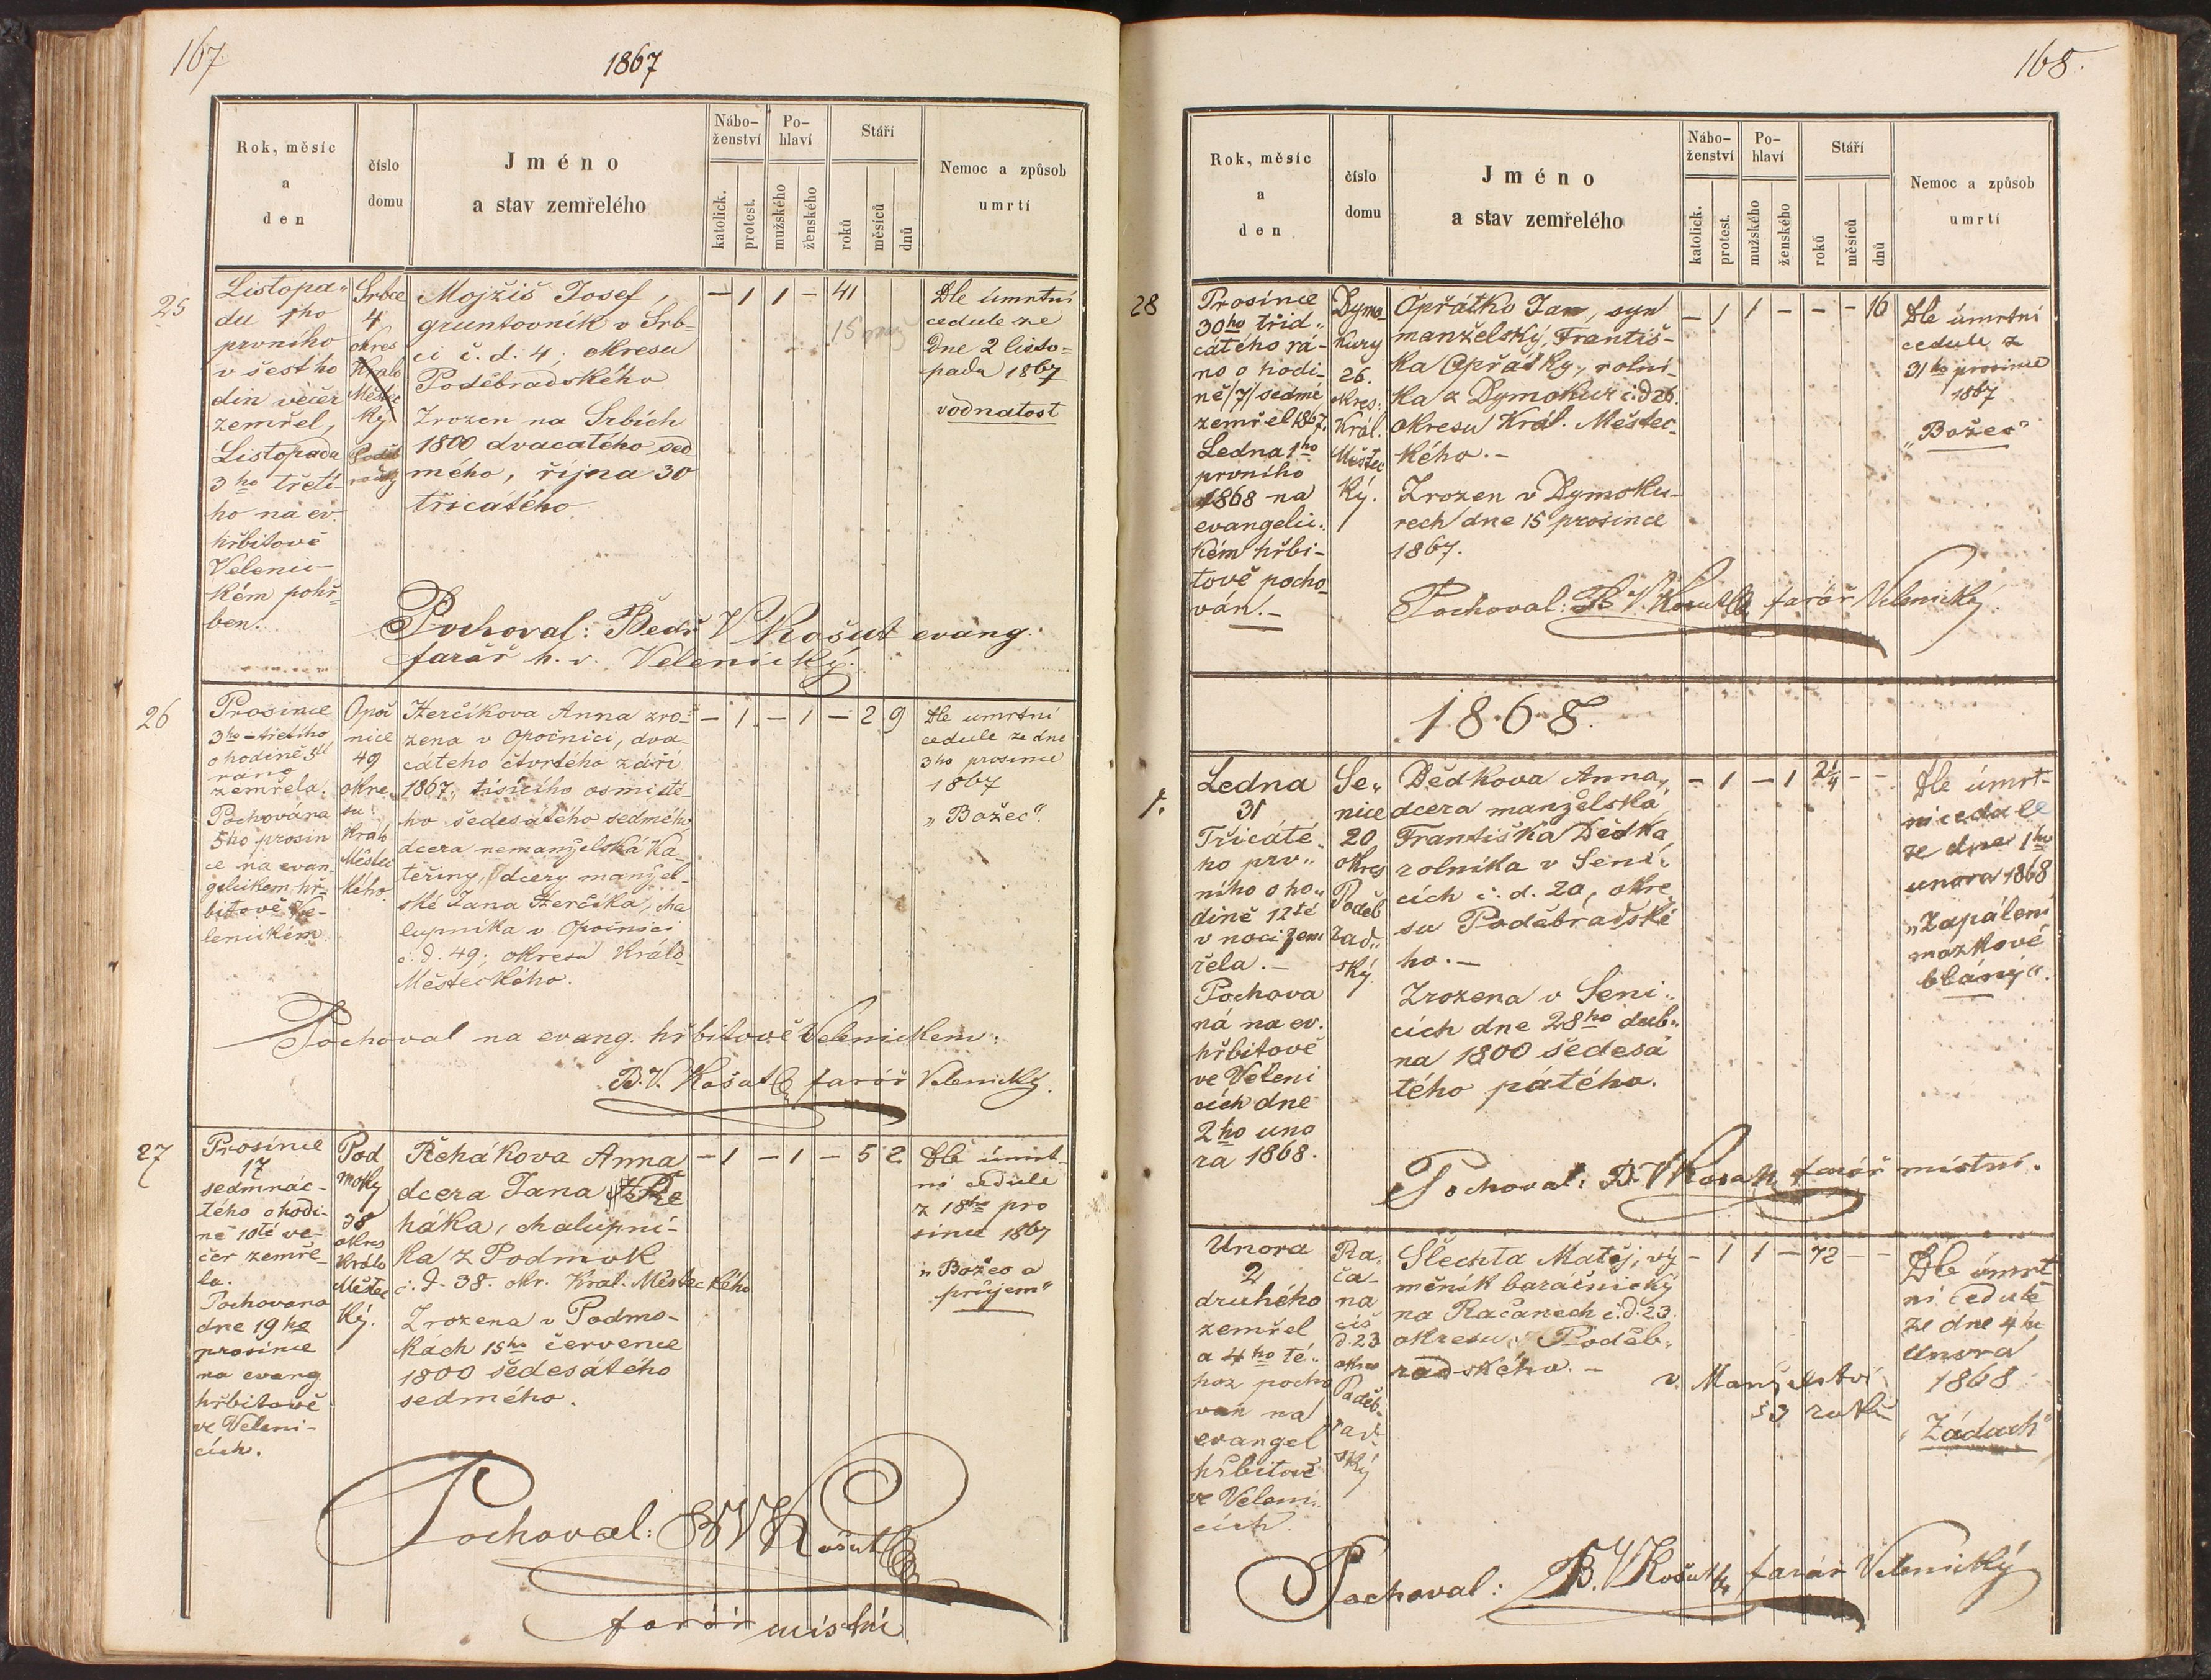 167
1867
Rok, měsíc
a
den
číslo
domu
Jméno
a stav zemřelého
Nábo-
ženství
katolick.
protest.
Po-
hlaví
mužského
ženského
Stáří
roků
měsíců
dnů
Nemoc a způsob
umrtí
25
Listopa„
du 1ho
prvního
v šest ho
din večer
zemřel,
Listopadu
3ho třetí-
ho na ev.
hřbitově
Velenic-
kém pohř-
ben.
Srbce
4
okres
Králo
Městec
ký
Poděb
radský
Mojžiš Josef,
gruntovník v Srb-
ci č. d. 4; okresu
Poděbradského
Zrozen na Srbích
1800 dvacatého sed
mého, října 30
třicátého
– 1 1 – 41
Dle úmrtní
cedule ze
dne 2 listo-
padu 1867
vodnatost
Pochoval: Bedř V Košut evang.
farář h. v. Velenický.
26
Prosince
3ho – třetího
o hodině 5té
rano
zemřela.
Pochována
5ho prosin
ce na evan-
gelickém hř-
bitově Ve-
lenickém
Opoč
nice
49
okre
su:
Králo
Městec
kého
Herčíkova Anna zro-
zena v Opočnici, dva-
cáteho čtvrtého září
1867, tisícího osmisté-
ho šedesátého sedmého
dcera nemanželská Ka-
teřiny, dcery manžel-
ské Jana Herčíka, cha
lupníka v Opočnici
č. d. 49; okresu Králo
Městeckého.
– 1 – 1 – 2 9
Dle umrtní
cedule ze dne
3ho prosince
1867
„Božec“.
Pochoval na evang. hřbitově Velenickem:
B. V. Košut farář Velenický.
27
Prosince
17
sedmnác-
tého o hodi-
ně 10té ve-
čer zemře-
la.
Pochovana
dne 19ho
prosince
na evang
hřbitově
ve Veleni-
cích.
Pod
moky
38
okres
Králo
Městec
ký.
Řehákova Anna
dcera Jana Ře
háka, chalupní-
ka z Podmok
č. d. 38. okr. Kral. Městeckého
Zrozena v Podmo-
kách 15ho července
1800 šedesátého
sedmého.
– 1 – 1 – 5 2
Dle úmrt-
ní cedule
z 18ho pro
since 1867
„Božec a
průjem“
Pochoval: B V Košut
farář místní.
168.
Rok, měsíc
a
den
číslo
domu
Jméno
a stav zemřelého
Nábo-
ženství
katolick.
protest.
Po-
hlaví
mužského
ženského
Stáří
roků
měsíců
dnů
Nemoc a způsob
umrtí
28
Prosince
30ho třid„
cátého rá-
no o hodi-
ně /7/ sedmé
zemřel 1867.
Ledna 1ho
prvního
1868 na
evangelic.
kém hřbi-
tově pocho
ván.–
Dymo-
kury
26.
okres:
Král.
Městec
ký.
Opřátko Jan, syn
manželský, Františ-
ka Opřátky, rolní-
ka z Dymokur č. d 26.
okresu Král. Městec-
kého.–
Zrozen v Dymoku-
rech dne 15 prosince
1867.
– 1 1 – – – 16
Dle úmrtní
cedule z
31ho prosince
1867
„Božec“
Pochoval: B V Košut farář Velenický.
1868.
1.
Ledna
31
Třicáté„
ho prv„
ního o ho„
dině 12té
v noci zem
řela.–
Pochova
ná na ev.
hřbitově
ve Veleni
cích dne
2ho uno
ra 1868.
Se„
nice
20
okres
Poděb
rad„
ský.
Dědkova Anna,
dcera manželská,
Františka Dědka
rolníka v Seni-
cích č. d. 20, okre
su Poděbradské
ho.–
Zrozena v Seni„
cích dne 28ho dub„
na 1800 šedesá
tého pátého.
– 1 – 1 2¼ – –
Dle úmrt-
ní cedule
ze dne 1ho
unora 1868
„Zapálení
mozkové
blány“.
Pochoval: B. V Košut farář místní.
Unora
2
druhého
zemřel
a 4ho té„
hož pocho
ván na
evangel
hřbitově
ve Veleni„
cích.
Ra„
ča-
na
čís
d. 23
okres
Poděb„
rad„
ský
Šlechta Matěj, vý
měník baračnický
na Račanech č. d. 23.
okresu Poděb„
radského.–
v Manželství
53 roků
– 1 1 – 72 – –
Dle úmrt
ní cedule
ze dne 4ho
Unora
1868
„Zádach“
Pochoval: B. V Košut farár Velenický